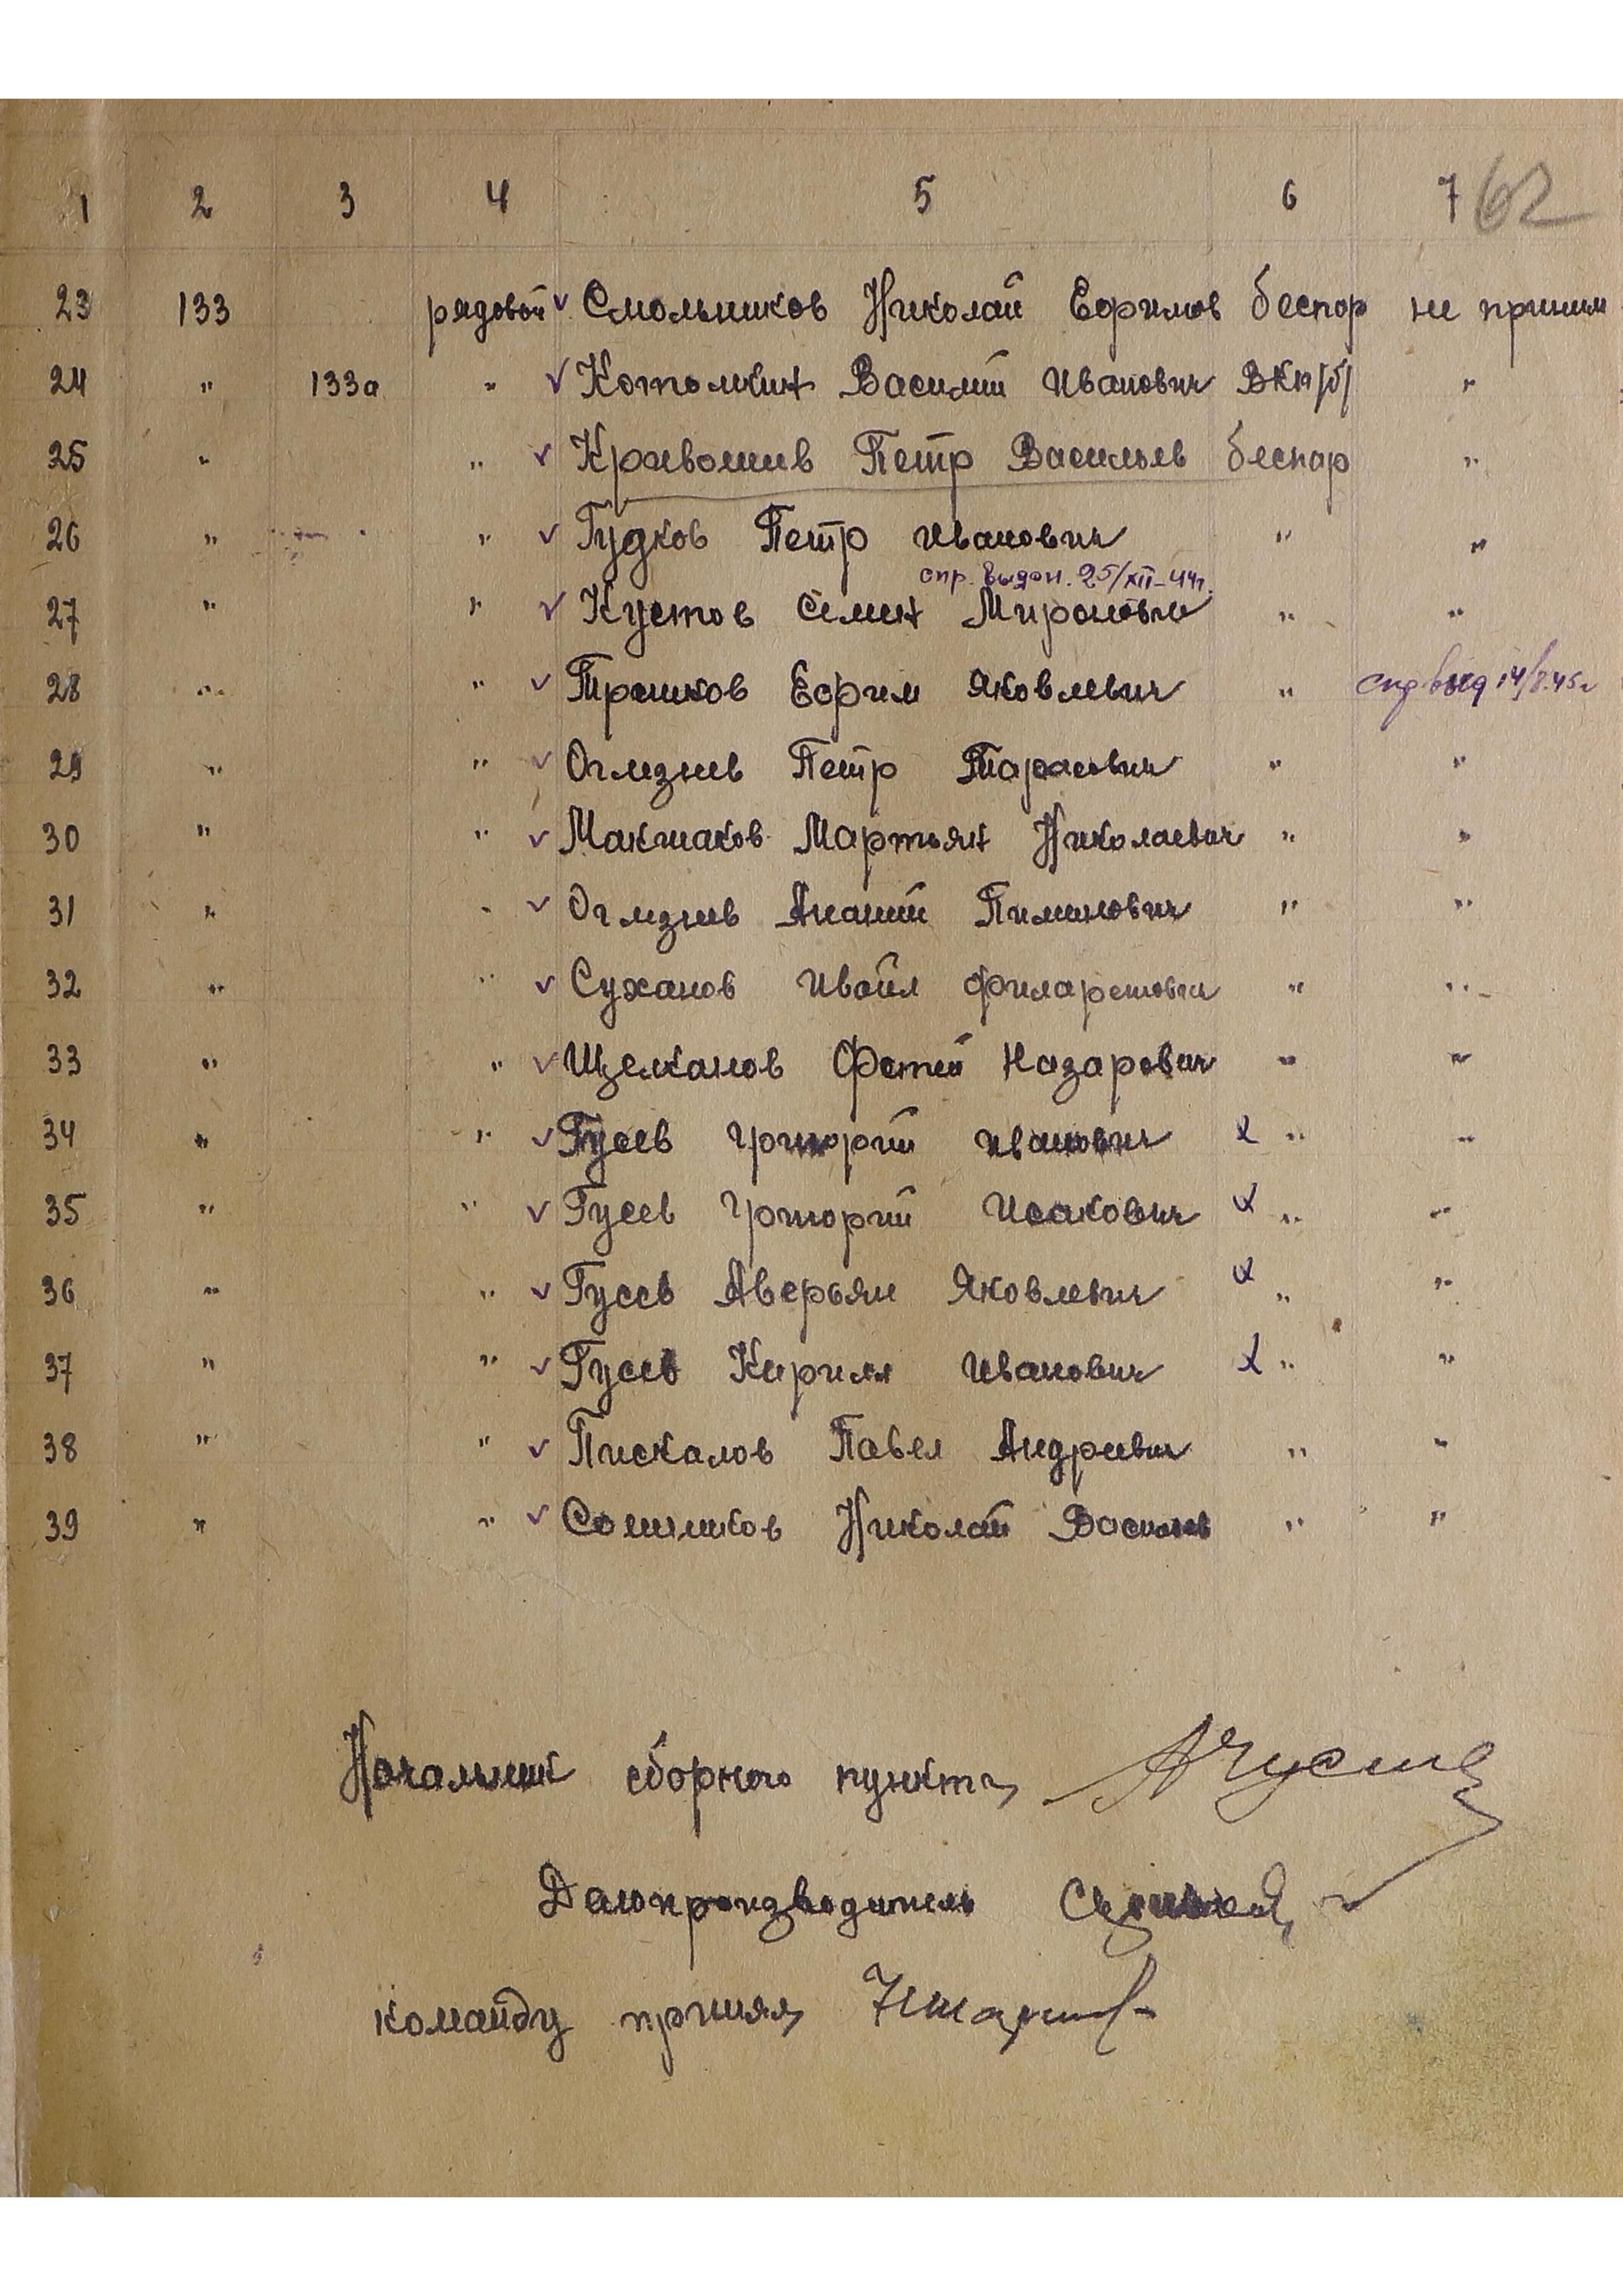 1 2 3 4 5 6 7 62
23 133 рядовой ✓ Смольников Николай Ефримов беспар не приним
24 " 133а " ✓ Котомкин Василий Иванович ВКП/б/ "
25 " " ✓ Кривошив Петр Васильев беспар "
26 " " ✓ Гудков Петр Иванович " "
спр. выдан. 25/XII-44г.
27 " " ✓ Кустов Семен Миронович " "
28 " " ✓ Трошков Ефрим Яковлевич " спр выд 14/8.45г
29 " " ✓ Оглезнев Петр Тарасович " "
30 " " ✓ Макшаков Мартьян Николаевич " "
31 " " ✓ Оглезнев Ананий Пиминович " "
32 " " ✓ Суханов Ивойл Филаретович " "
33 " " ✓ Щелканов Фотей Назарович " "
34 " " ✓ Гусев Григорий Иванович " "
35 " " ✓ Гусев Григорий Исакович " "
36 " " ✓ Гусев Аверьян Яковлевич " "
37 " " ✓ Гусев Кирилл Иванович " "
38 " " ✓ Пискалов Павел Андреевич " "
39 " " ✓ Николай Васильев " "
Начальник сборного пункта
Делопроизводитель
команду принял